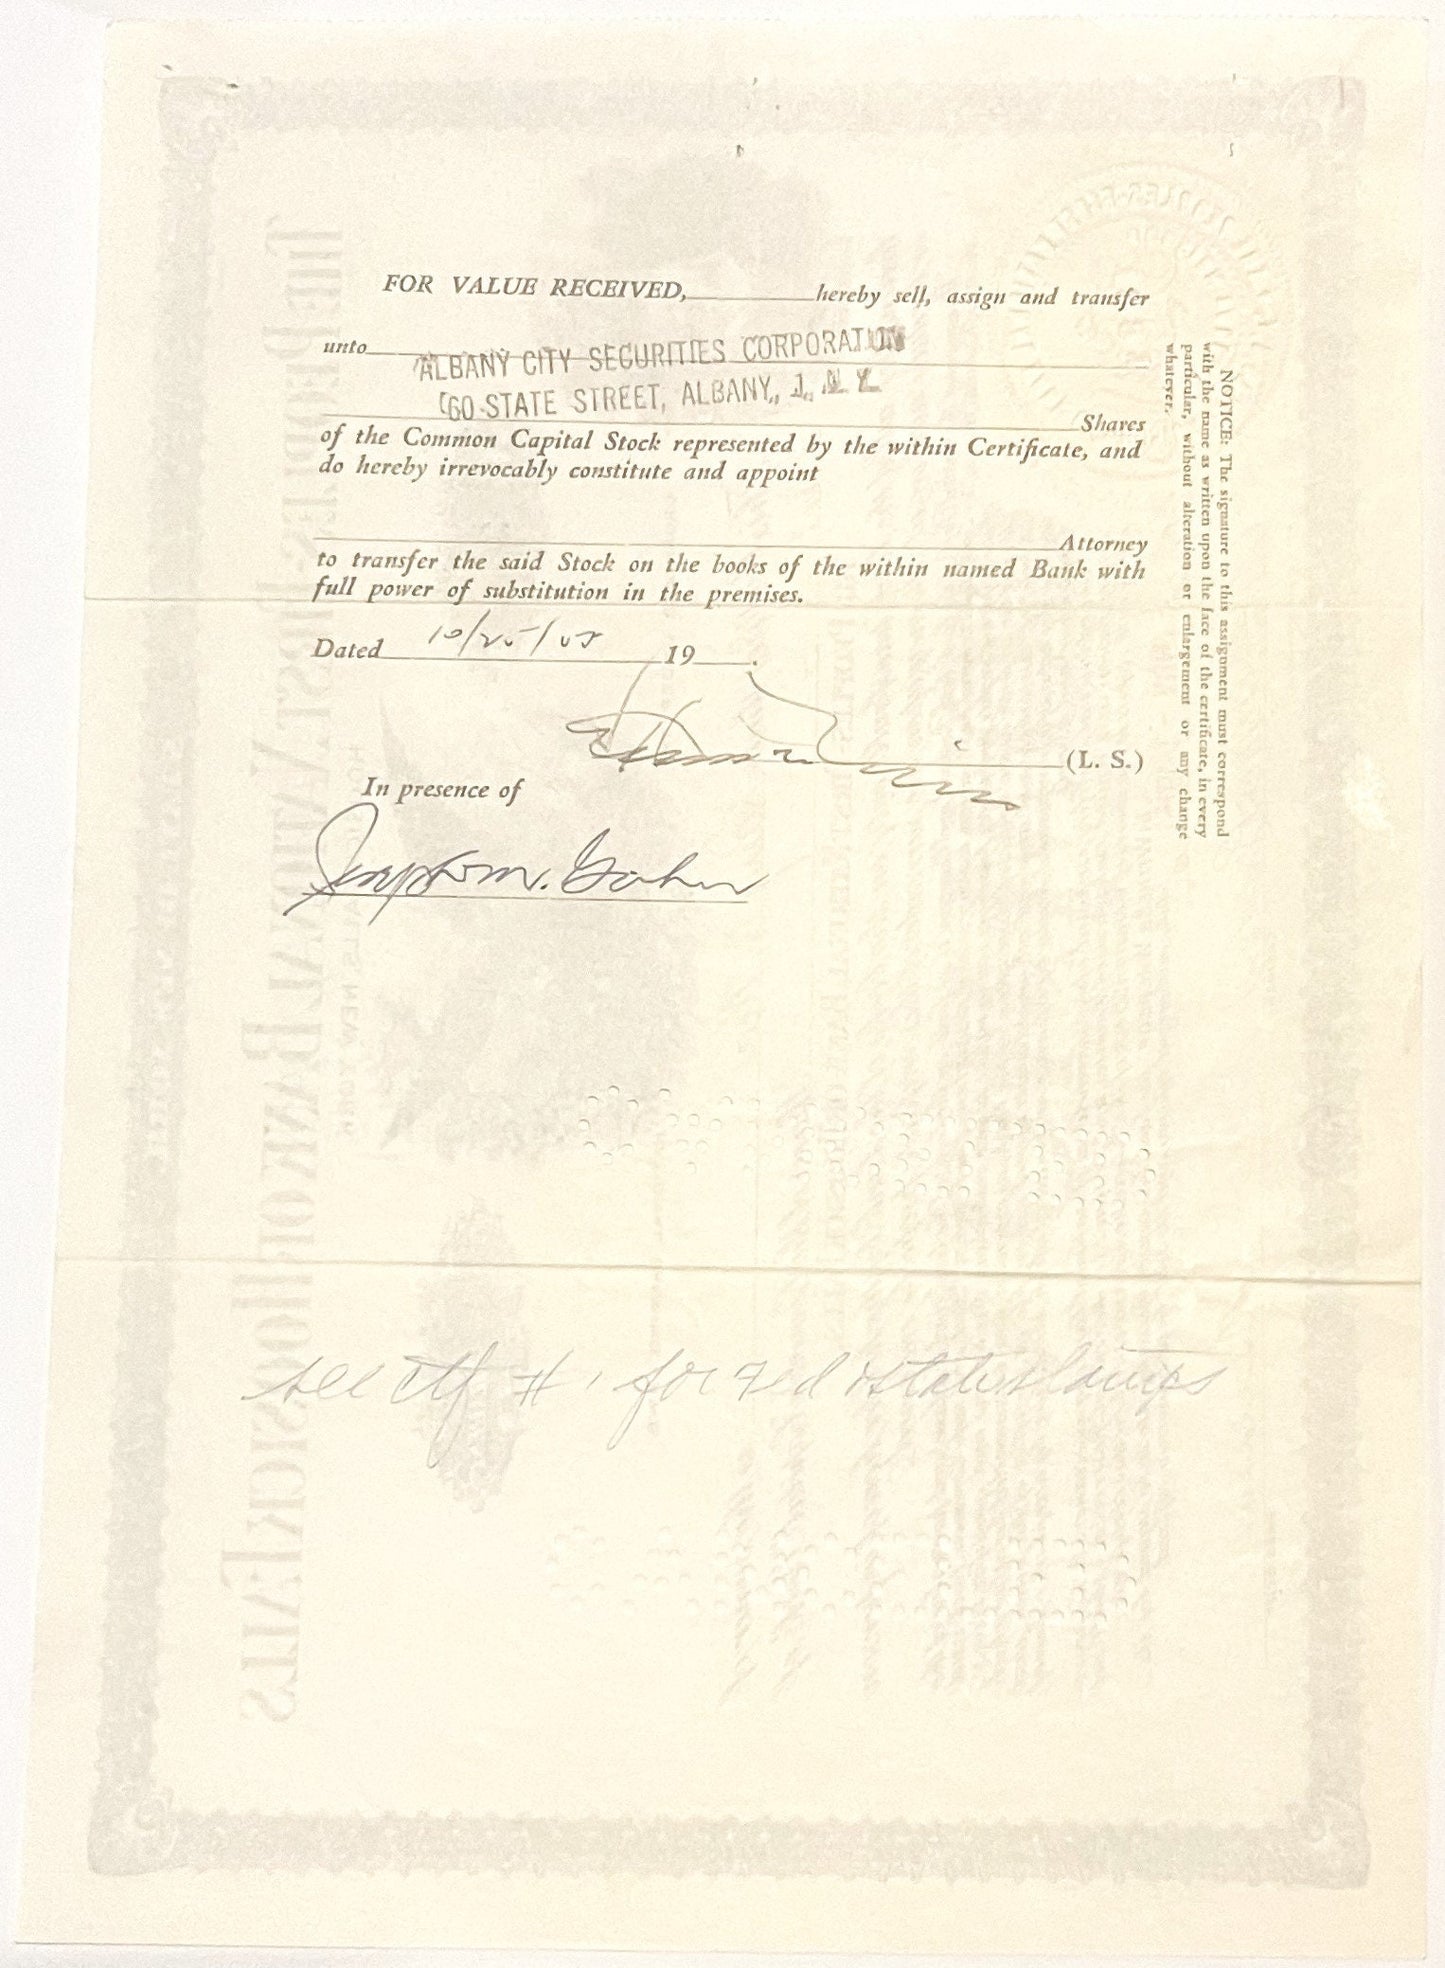 FOR VALUE RECEIVED,________hereby sell, assign and transfer
unto ALBANY CITY SECURITIES CORPORATION
60 STATE STREET, ALBANY, N. Y.
Shares
of the Common Capital Stock represented by the within Certificate, and
do hereby irrevocably constitute and appoint
Attorney
to transfer the said Stock on the books of the within named Bank with
full power of substitution in the premises.
Dated 19 .
(L. S.)
In presence of
Joseph
NOTICE: The signature to this assignment must correspond
with the name as written upon the face of the certificate, in every
particular, without alteration or enlargement or any change
whatever.
see ctf # 1 for Fed & state stamps
THE PEOPLES FIRST NATIONAL BANK OF HOOSICK FALLS